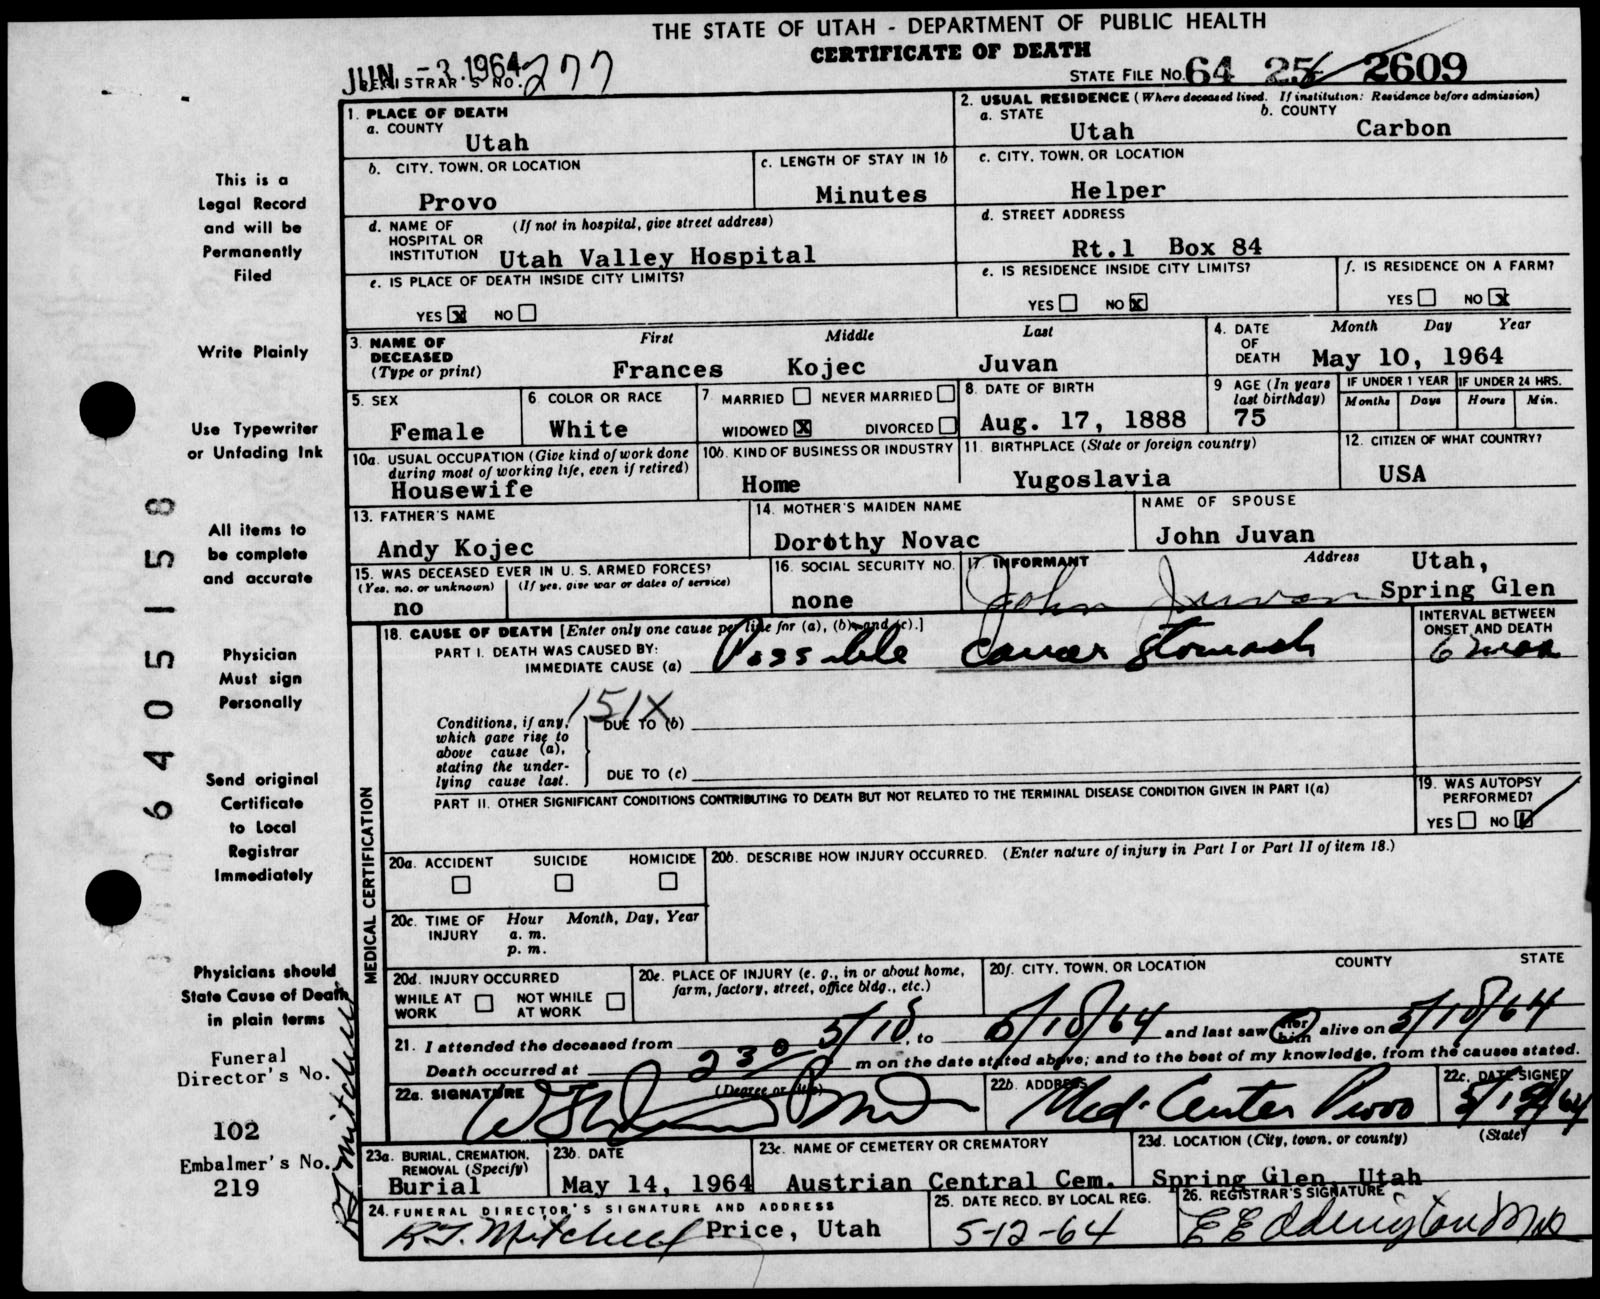 THE STATE OF UTAH - DEPARTMENT OF PUBLIC HEALTH
CERTIFICATE OF DEATH
JUN -3 1964
REGISTRAR'S NO. 277
STATE FILE NO. 64 25 2609
1. PLACE OF DEATH
a. COUNTY
Utah
2. USUAL RESIDENCE (Where deceased lived. If institution: Residence before admission)
a. STATE
Utah
b. COUNTY
Carbon
b. CITY, TOWN, OR LOCATION
Provo
c. LENGTH OF STAY IN 1b
Minutes
c. CITY, TOWN, OR LOCATION
Helper
d. NAME OF HOSPITAL OR INSTITUTION
(If not in hospital, give street address)
Utah Valley Hospital
d. STREET ADDRESS
Rt.1 Box 84
e. IS PLACE OF DEATH INSIDE CITY LIMITS?
YES x NO
e. IS RESIDENCE INSIDE CITY LIMITS?
YES NO x
f. IS RESIDENCE ON A FARM?
YES NO x
3. NAME OF DECEASED
(Type or print)
First Middle Last
Frances Kojec Juvan
4. DATE OF DEATH
Month Day Year
May 10, 1964
5. SEX
Female
6. COLOR OR RACE
White
7. MARRIED NEVER MARRIED
WIDOWED x DIVORCED
8. DATE OF BIRTH
Aug. 17, 1888
9 AGE (In years last birthday)
75
IF UNDER 1 YEAR
Months Days
IF UNDER 24 HRS.
Hours Min.
10a. USUAL OCCUPATION (Give kind of work done
during most of working life, even if retired)
Housewife
10b. KIND OF BUSINESS OR INDUSTRY
Home
11. BIRTHPLACE (State or foreign country)
Yugoslavia
12. CITIZEN OF WHAT COUNTRY?
USA
13. FATHER'S NAME
Andy Kojec
14. MOTHER'S MAIDEN NAME
Dorothy Novac
NAME OF SPOUSE
John Juvan
15. WAS DECEASED EVER IN U. S. ARMED FORCES?
(Yes, no, or unknown) (If yes, give war or dates of service)
no
16. SOCIAL SECURITY NO.
none
17. INFORMANT Address
John Juvan
Utah,
Spring Glen
MEDICAL CERTIFICATION
18. CAUSE OF DEATH [Enter only one cause per line for (a), (b), and (c).]
PART I. DEATH WAS CAUSED BY:
IMMEDIATE CAUSE (a) Possible Cancer Stomach
INTERVAL BETWEEN
ONSET AND DEATH
6 mos
151X
Conditions, if any,
which gave rise to
above cause (a),
stating the under-
lying cause last.
DUE TO (b)
DUE TO (c)
PART II. OTHER SIGNIFICANT CONDITIONS CONTRIBUTING TO DEATH BUT NOT RELATED TO THE TERMINAL DISEASE CONDITION GIVEN IN PART I(a)
19. WAS AUTOPSY
PERFORMED?
YES NO
20a. ACCIDENT SUICIDE HOMICIDE
20b. DESCRIBE HOW INJURY OCCURRED. (Enter nature of injury in Part I or Part II of item 18.)
20c. TIME OF INJURY
Hour Month, Day, Year
a. m.
p. m.
20d. INJURY OCCURRED
WHILE AT WORK NOT WHILE AT WORK
20e. PLACE OF INJURY (e. g., in or about home,
farm, factory, street, office bldg., etc.)
20f. CITY, TOWN, OR LOCATION COUNTY STATE
21. I attended the deceased from 5/10, to 5/10/64 and last saw her him alive on 5/10/64
Death occurred at 2 30 m on the date stated above; and to the best of my knowledge, from the causes stated.
22a. SIGNATURE (Degree or title)
22b. ADDRESS
Med. Center Provo
22c. DATE SIGNED
5/12/64
23a. BURIAL, CREMATION,
REMOVAL (Specify)
Burial
23b. DATE
May 14, 1964
23c. NAME OF CEMETERY OR CREMATORY
Austrian Central Cem.
23d. LOCATION (City, town, or county) (State)
Spring Glen, Utah
24. FUNERAL DIRECTOR'S SIGNATURE AND ADDRESS
R.J. Mitchell Price, Utah
25. DATE RECD. BY LOCAL REG.
5-12-64
26. REGISTRAR'S SIGNATURE
E E Eddington MD
This is a
Legal Record
and will be
Permanently
Filed
Write Plainly
Use Typewriter
or Unfading Ink
All items to
be complete
and accurate
Physician
Must sign
Personally
Send original
Certificate
to Local
Registrar
Immediately
Physicians should
State Cause of Death
in plain terms
Funeral
Director's No.
102
Embalmer's No.
219
R J Mitchell
6405158